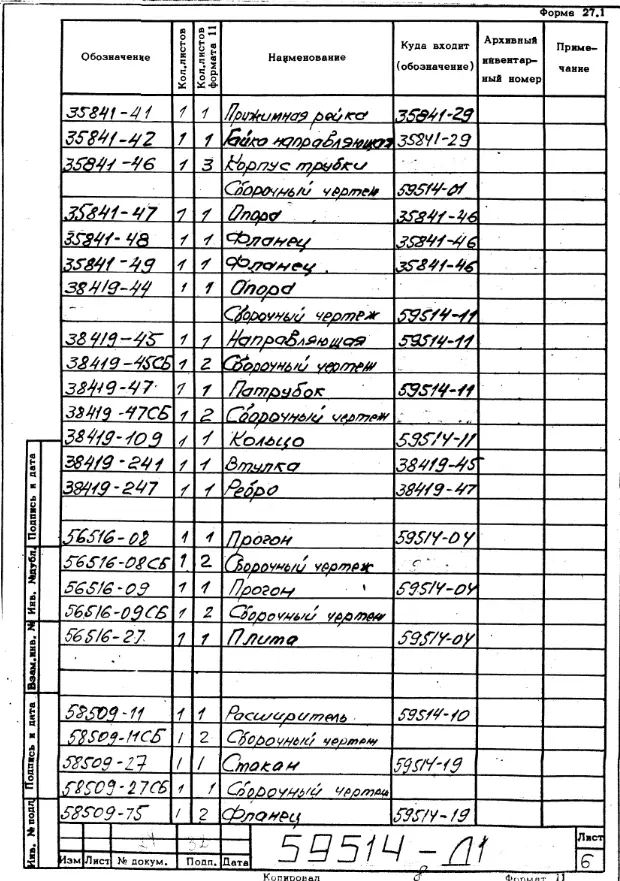 Форма 27.1
Обозначение Кол.листов Кол.листов формата 11 Наименование Куда входит (обозначение) Архивный инвентар- ный номер Приме- чание
35841-41 1 1 Прижимная рейка 35841-29
35841-42 1 1 Гайка направляющая 35841-29
35841-46 1 3 Корпус трубки
Сборочный чертеж 59514-01
35841-47 1 1 Опора 35841-46
35841-48 1 1 Фланец 35841-46
35841-49 1 1 Фланец 35841-46
38419-44 1 1 Опора
Сборочный чертеж 59514-11
38419-45 1 1 Направляющая 59514-11
38419-45СБ 1 2 Сборочный чертеж
38419-47 1 1 Патрубок 59514-11
38419-47СБ 1 2 Сборочный чертеж
38419-109 1 1 Кольцо 59514-11
38419-241 1 1 Втулка 38419-45
38419-247 1 1 Ребро 38419-47
56516-08 1 1 Прогон 59514-04
56516-08СБ 1 2 Сборочный чертеж
56516-09 1 1 Прогон 59514-04
56516-09СБ 1 2 Сборочный чертеж
56516-27 1 1 Плита 59514-04
58509-11 1 1 Расширитель 59514-10
58509-11СБ 1 2 Сборочный чертеж
58509-27 1 1 Стакан 59514-19
58509-27СБ 1 1 Сборочный чертеж
58509-75 1 2 Фланец 59514-19
Подпись и дата
Инв. №дубл.
Взам.инв. №
Подпись и дата
Инв. №подл
Изм Лист № докум. Подп. Дата
59514-Д1
Лист
6
Копировал Формат 11